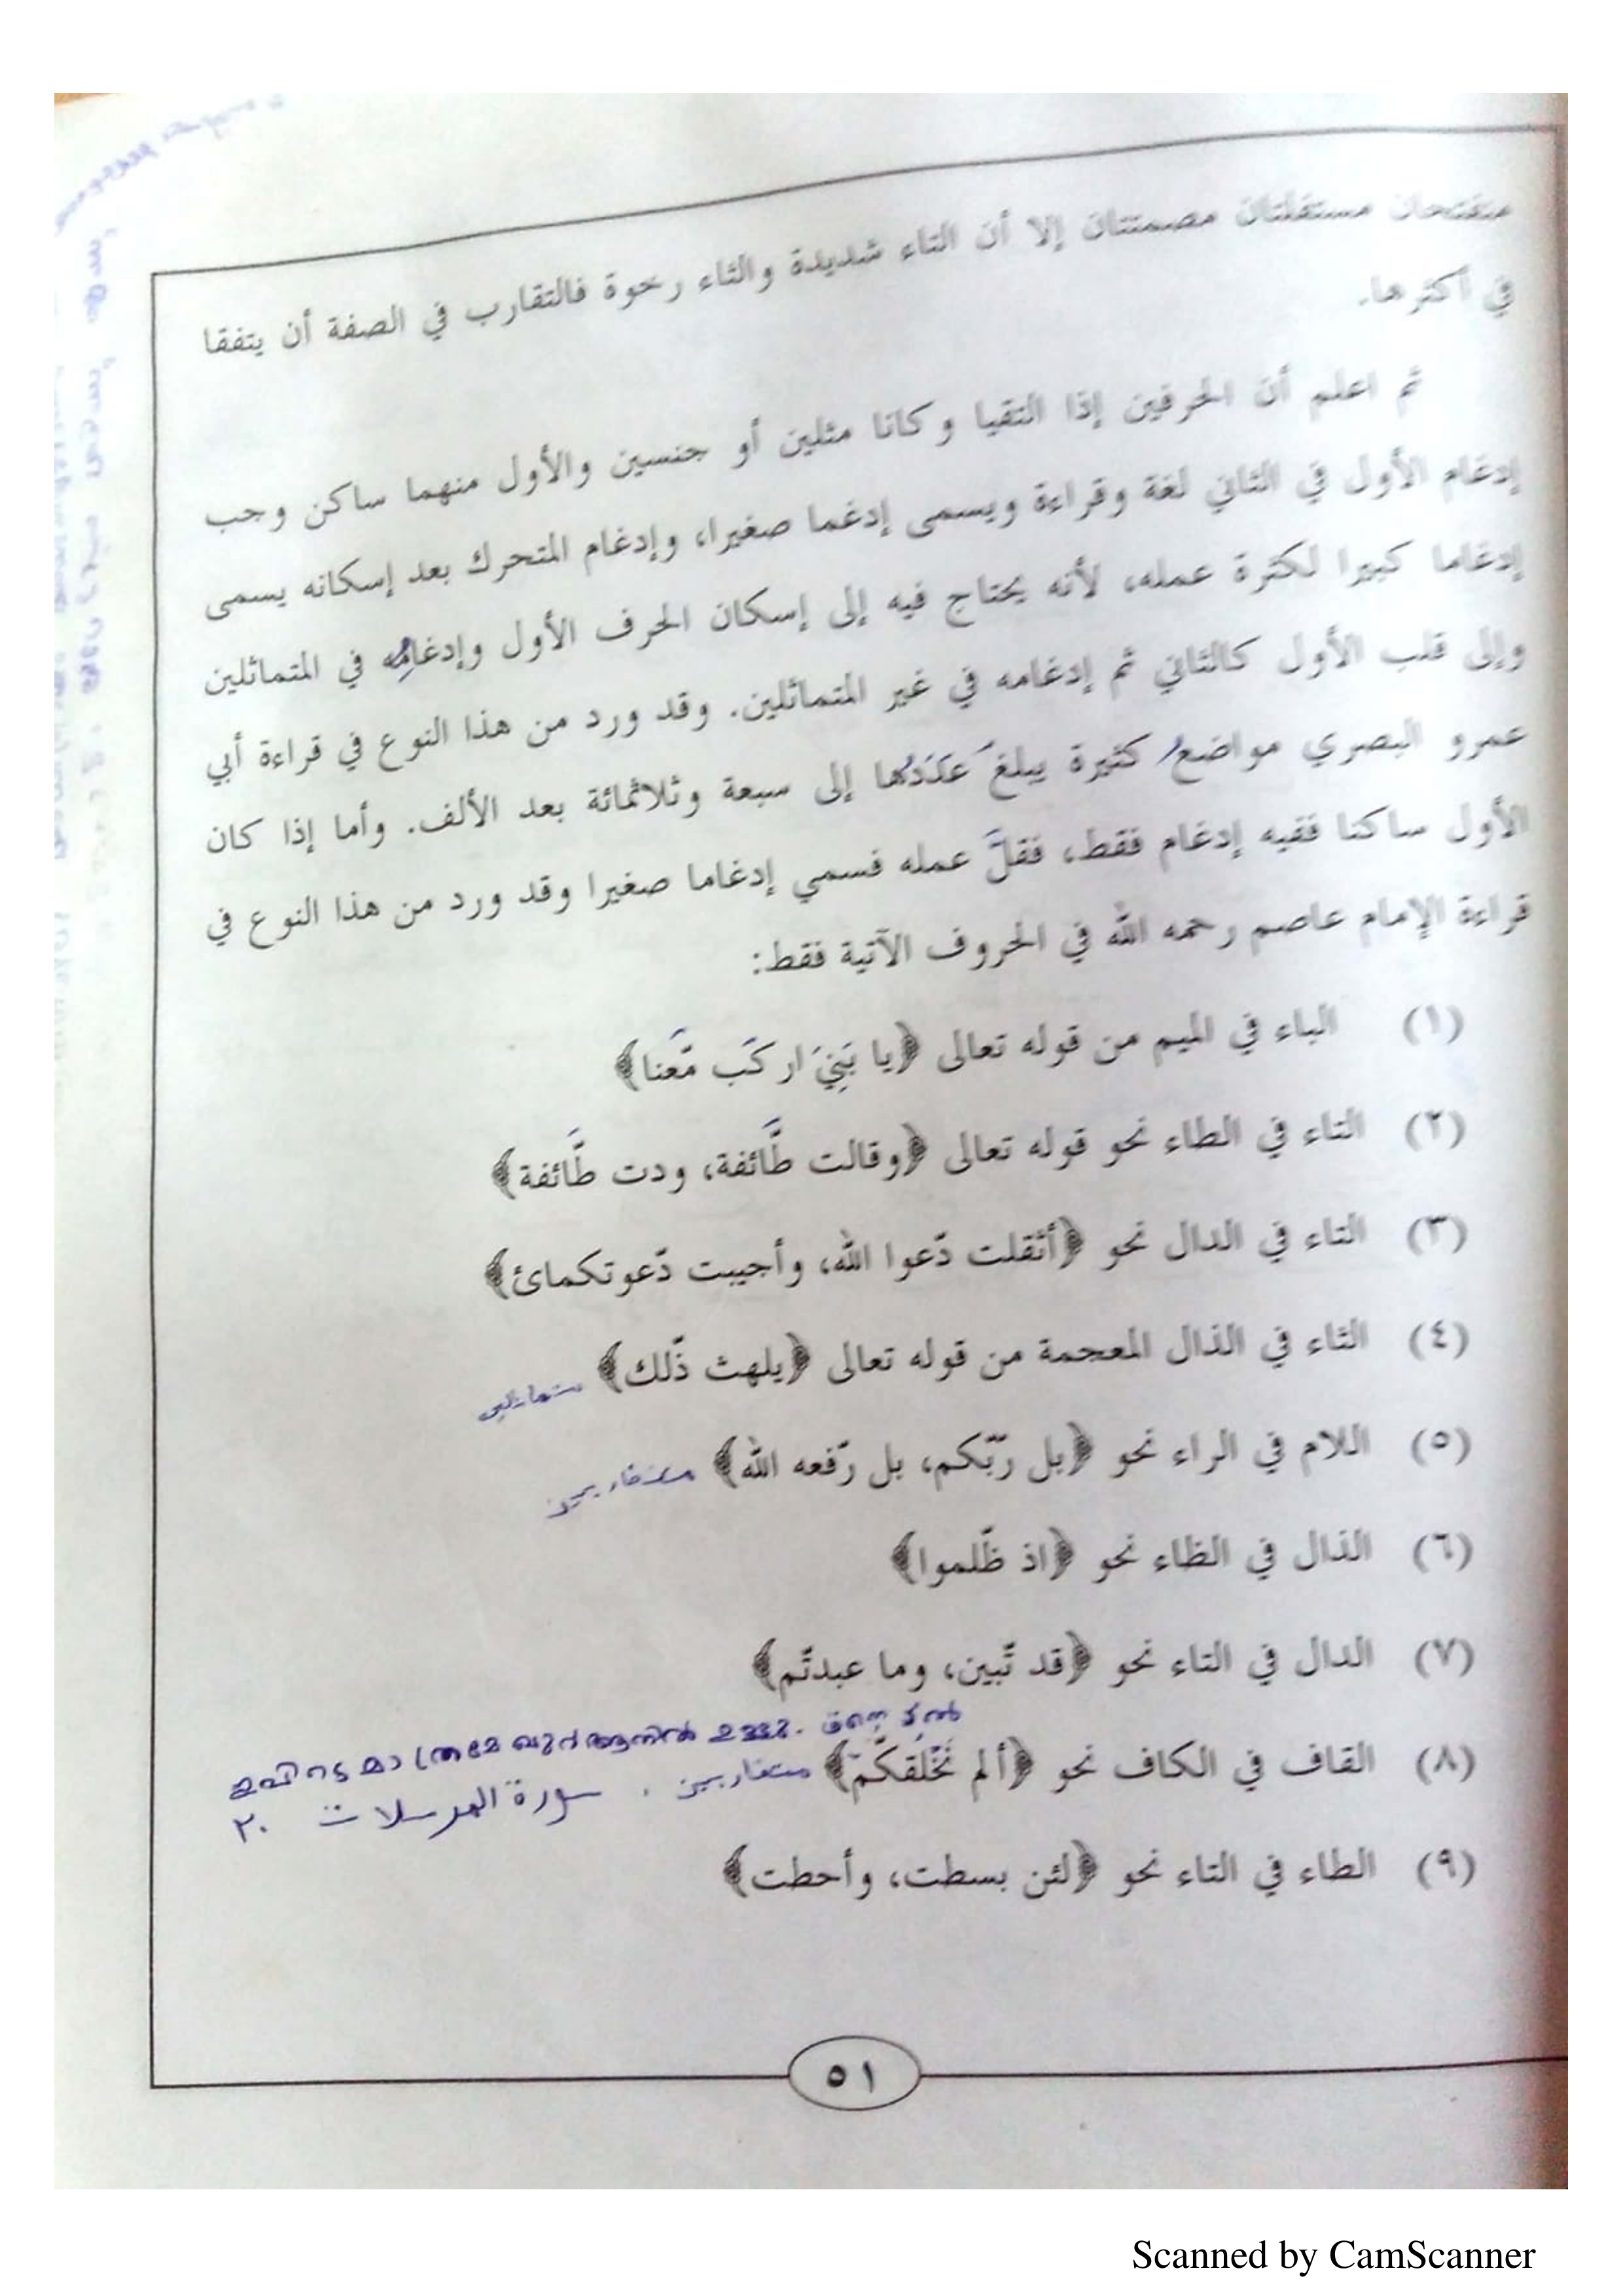 منفتحان مستفلتان مصمتتان إلا أن التاء شديدة والثاء رخوة فالتقارب في الصفة أن يتفقا
في أكثرها.
ثم اعلم أن الحرفين إذا التقيا وكانا مثلين أو جنسين والأول منهما ساكن وجب
إدغام الأول في الثاني لغة وقراءة ويسمى إدغما صغيرا، وإدغام المتحرك بعد إسكانه يسمى
إدغاما كبيرا لكثرة عمله، لأنه يحتاج فيه إلى إسكان الحرف الأول وإدغامِه في المتماثلين
وإلى قلب الأول كالثاني ثم إدغامه في غير المتماثلين. وقد ورد من هذا النوع في قراءة أبي
عمرو البصري مواضعُ كثيرة يبلغ عَدَدُها إلى سبعة وثلاثمائة بعد الألف. وأما إذا كان
الأول ساكنا ففيه إدغام فقط، فقلَّ عمله فسمي إدغاما صغيرا وقد ورد من هذا النوع في
قراءة الإمام عاصم رحمه الله في الحروف الآتية فقط:
(١) الباء في الميم من قوله تعالى ﴿يا بَنِيَ اركَب مَّعَنا﴾
(٢) التاء في الطاء نحو قوله تعالى ﴿وقالت طَّائفة، ودت طَّائفة﴾
(٣) التاء في الدال نحو ﴿أثقلت دّعوا الله، وأجيبت دّعوتكمائ﴾
(٤) الثاء في الذال المعجمة من قوله تعالى ﴿يلهث ذّلك﴾
(٥) اللام في الراء نحو ﴿بل رّبّكم، بل رّفعه الله﴾ متقاربين
(٦) الذال في الظاء نحو ﴿اذ ظّلموا﴾
(٧) الدال في التاء نحو ﴿قد تّبين، وما عبدتّم﴾
ഇവിടെ മാത്രമേ ഖുർആനിൽ ഉള്ളൂ.
(٨) القاف في الكاف نحو ﴿ألم نَخْلقكُّمْ﴾ متقاربين . سورة المرسلات ٢٠
(٩) الطاء في التاء نحو ﴿لئن بسطت، وأحطت﴾
٥١
Scanned by CamScanner